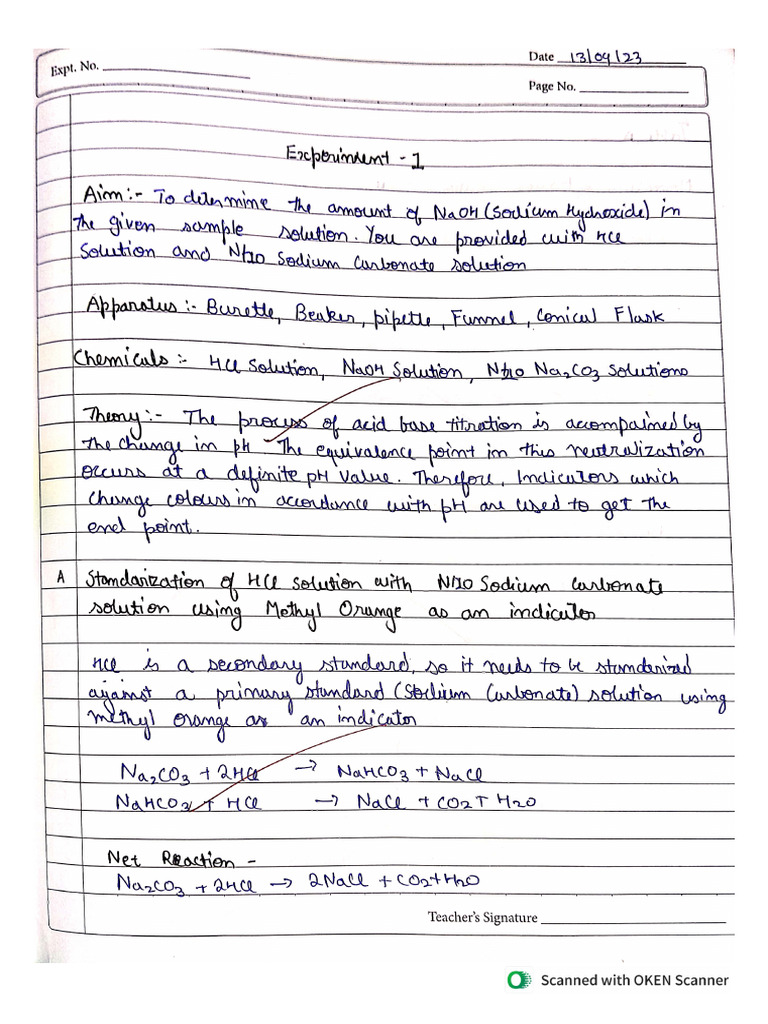 Expt. No.
Date 13/09/23
Page No.
Experiment - 1
Aim:- To determine the amount of NaOH (Sodium Hydroxide) in
the given sample solution. You are provided with HCl
Solution and N/10 Sodium Carbonate solution
Apparatus :- Burette, Beaker, pipette, Funnel, Conical Flask
Chemicals :- HCl Solution, NaOH Solution, N/10 Na2CO3 Solutions
Theory :- The process of acid base titration is accompained by
the change in pH The equivalence point in this neutralization
occurs at a definite pH value. Therefore, Indicators which
change colours in accordance with pH are used to get the
end point.
A Standarization of HCl solution with N/10 Sodium Carbonate
solution using Methyl Orange as an indicator
HCl is a secondary standard, so it needs to be standarized
against a primary standard (Sodium Carbonate) solution using
methyl orange as an indicator
Na2CO3 + 2HCl → NaHCO3 + NaCl
NaHCO3 + HCl → NaCl + CO2 + H2O
Net Reaction -
Na2CO3 + 2HCl → 2NaCl + CO2+H2O
Teacher's Signature
Scanned with OKEN Scanner